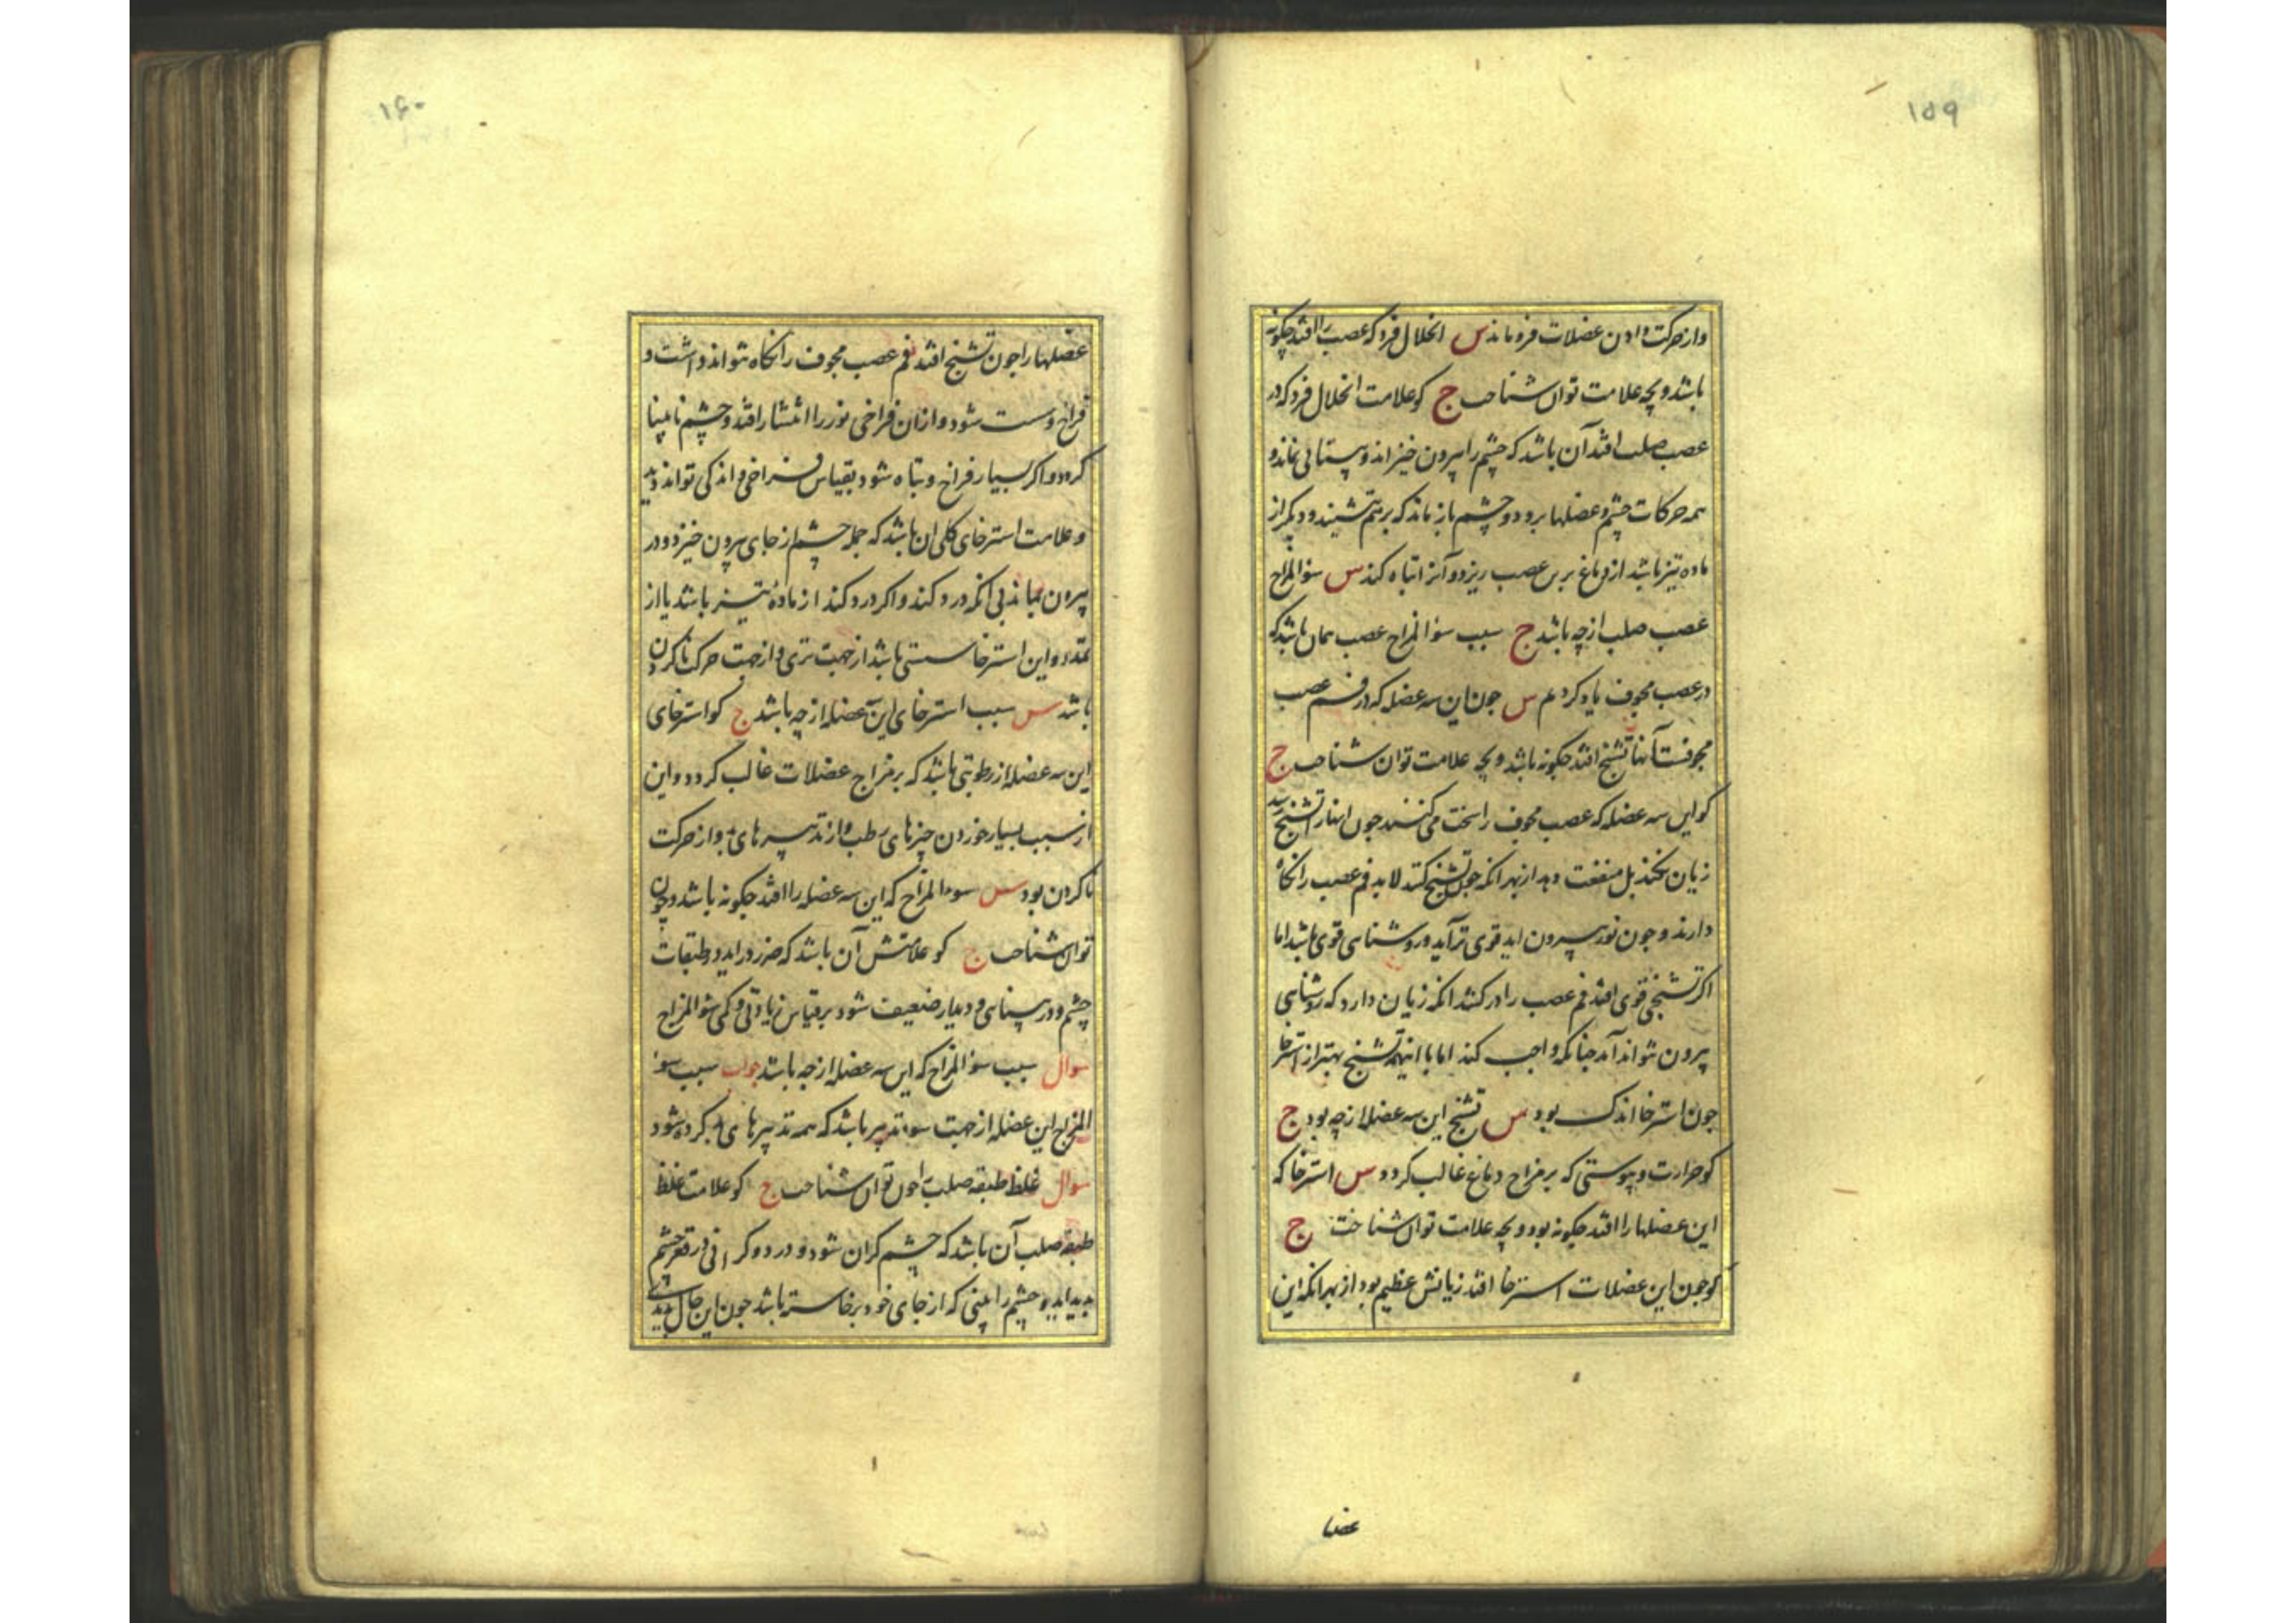 ۱۵۹
واز حرکت دادن عضلات فرو ماند س انحلال فرد که عصب را افتد چکونه
باشد و بچه علامت توان شناخت ج کو علامت انحلال فرد که در
عصب صلب افتد آن باشد که چشم را بیرون خیزاند و بینائی نماند و
همه حرکات چشم و عضلها برود و چشم باز ماند که بر هم نشیند و دیکر از
ماده تیز باشد از دماغ برین عصب ریزد و آنرا تباه کند س سؤ المزاج
عصب صلب از چه باشد ج سبب سؤ المزاج عصب همان باشد که
در عصب مجوف یاد کردیم س جون این سه عضله که در فم عصب
مجوفست آنها تشنج افتد جکونه باشد و بچه علامت توان شناخت ج
کو این سه عضله که عصب مجوف را سخت می کنند جون اینها را تشنج رسد
زیان نکند بل منفعت دهد از بهر انکه جون تشنج کند لابد فم عصب را نکاه
دارند و جون نور بیرون اید قوی تر آید و روشنایی قوی باشد اما
اکر تشنجی قوی افتد فم عصب را در کشد انکه زیان دارد که روشنایی
بیرون نتواند آمد جنانکه واجب کند اما با اینهمه تشنج بهتر از استرخا
جون استرخا اندک بود س تشنج این سه عضله از چه بود ج
کو حرارت و یبوستی که بر مزاج دماغ غالب کردد س استرخا که
این عضلها را افتد جکونه بود و بچه علامت توان شناخت ج
کو جون این عضلات استرخا افتد زیانش عظیم بود از بهر انکه این
عضلها
۱۶۰
عضلها را جون تشنج افتد فم عصب مجوف را نکاه نتواند داشت و
فراخ و سست شود و از ان فراخی نور را انتشار افتد و چشم نابینا
کردد و اکر بسیار فراخ و تباه شود بقیاس فراخی و اندکی تواند دید
و علامت استرخای کلی ان باشد که جمله چشم از جای بیرون خیزد و در
بیرون بماند بی انکه درد کند و اکر درد کند از ماده تیز باشد یا از
تمدد و این استرخا سستی باشد از جهت تری و از جهت حرکت ناکردن
باشد س سبب استرخای این عضله از چه باشد ج کو استرخای
این سه عضله از رطوبتی باشد که بر مزاج عضلات غالب کردد و این
از سبب بسیار خوردن چیزهای رطب و از تدبیرهای بد و از حرکت
ناکردن بود س سوء المزاج که این سه عضله را افتد جکونه باشد و چون
توان شناخت ج کو علامتش آن باشد که ضرر در اید در طبقات
چشم و در بینایی و دیدار ضعیف شود بر قیاس زیادتی و کمی سؤ المزاج
سوال سبب سؤ المزاج که این سه عضله از چه باشد جواب سبب سؤ
المزاج این عضله از جهت سوء تدبیر باشد که همه تدبیرهای بد کرده شود
سوال غلظ طبقه صلب را جون توان شناخت ج کو علامت غلظ
طبقه صلب آن باشد که چشم کران شود و درد و کرانی در قعر چشم
بدید اید و چشم را بینی که از جای خود برخاسته باشد جون این حال بدید